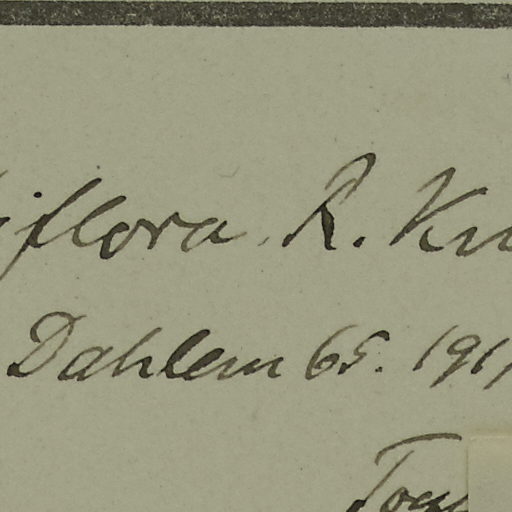 iflora R. Kn
Dahlem 65. 191